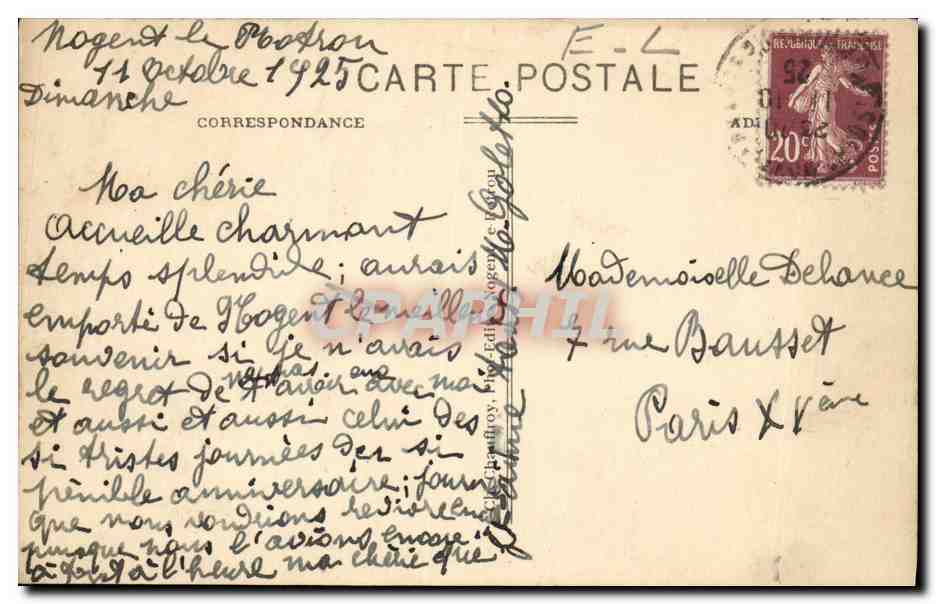 Nogent le Rotrou
11 Octobre 1925
Dimanche
E - L
CARTE POSTALE
CORRESPONDANCE
REPUBLIQUE FRANÇAISE
20c
POSTES
Ma chérie
Accueille charmant
temps splendide ; aurais
emporté de Nogent le meilleur
souvenir si je n'avais
le regret de ne pas t'avoir avec moi
et aussi et aussi celui des
si tristes journées d'un si
pénible anniversaire ; journées
que nous voudrions revivre
puisque nous l'avions encore
à tout à l'heure ma chérie que
j'aime tant M. Goletto.
Cl. Chauffroy, Phot-Edit. Nogent-le-Rotrou
CPARPHIL
Mademoiselle Dehance
7 rue Bausset
Paris XVème